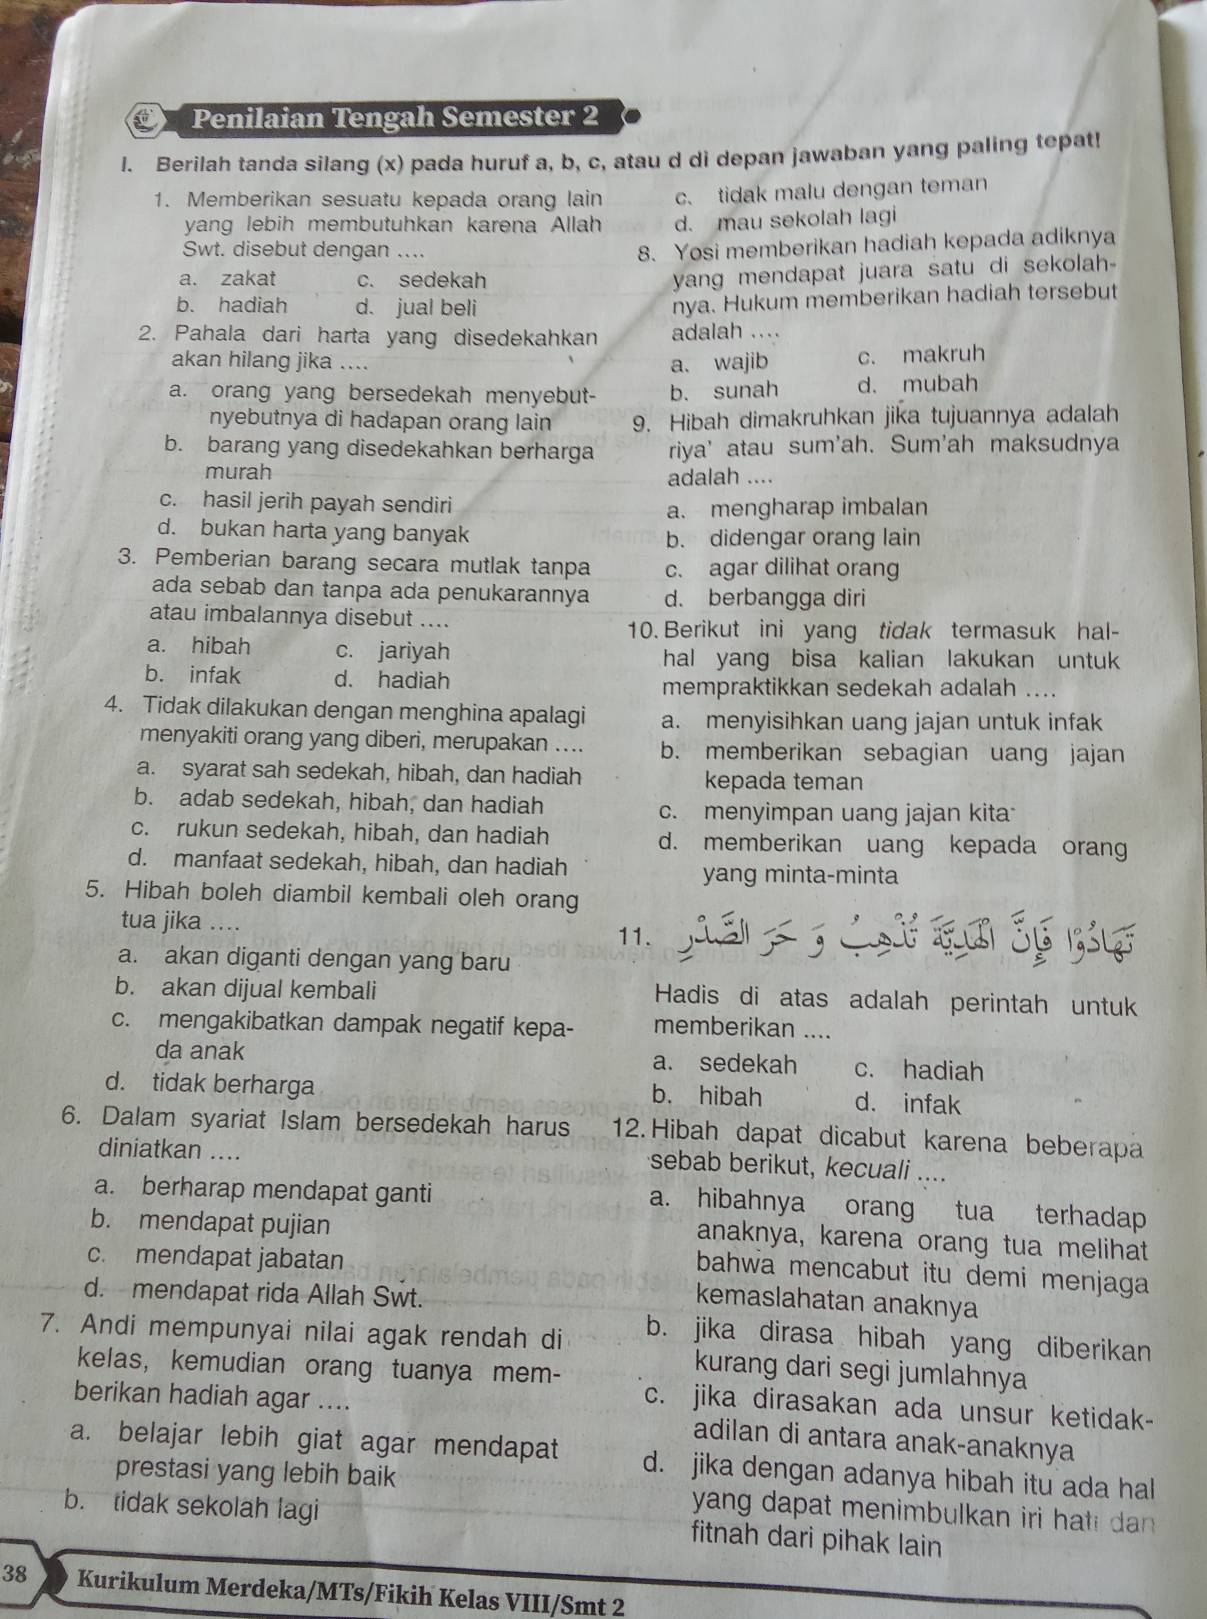 Penilaian Tengah Semester 2
I. Berilah tanda silang (x) pada huruf a, b, c, atau d di depan jawaban yang paling tepat!
1. Memberikan sesuatu kepada orang lain
yang lebih membutuhkan karena Allah
Swt. disebut dengan ....
a. zakat c. sedekah
b. hadiah d. jual beli
2. Pahala dari harta yang disedekahkan
akan hilang jika ....
a. orang yang bersedekah menyebut-
nyebutnya di hadapan orang lain
b. barang yang disedekahkan berharga
murah
c. hasil jerih payah sendiri
d. bukan harta yang banyak
3. Pemberian barang secara mutlak tanpa
ada sebab dan tanpa ada penukarannya
atau imbalannya disebut ....
a. hibah c. jariyah
b. infak d. hadiah
4. Tidak dilakukan dengan menghina apalagi
menyakiti orang yang diberi, merupakan ....
a. syarat sah sedekah, hibah, dan hadiah
b. adab sedekah, hibah, dan hadiah
c. rukun sedekah, hibah, dan hadiah
d. manfaat sedekah, hibah, dan hadiah
5. Hibah boleh diambil kembali oleh orang
tua jika ....
a. akan diganti dengan yang baru
b. akan dijual kembali
c. mengakibatkan dampak negatif kepa-
da anak
d. tidak berharga
6. Dalam syariat Islam bersedekah harus
diniatkan ....
a. berharap mendapat ganti
b. mendapat pujian
c. mendapat jabatan
d. mendapat rida Allah Swt.
7. Andi mempunyai nilai agak rendah di
kelas, kemudian orang tuanya mem-
berikan hadiah agar ....
a. belajar lebih giat agar mendapat
prestasi yang lebih baik
b. tidak sekolah lagi
c. tidak malu dengan teman
d. mau sekolah lagi
8. Yosi memberikan hadiah kepada adiknya
yang mendapat juara satu di sekolah-
nya. Hukum memberikan hadiah tersebut
adalah ....
a. wajib c. makruh
b. sunah d. mubah
9. Hibah dimakruhkan jika tujuannya adalah
riya' atau sum'ah. Sum'ah maksudnya
adalah ....
a. mengharap imbalan
b. didengar orang lain
c. agar dilihat orang
d. berbangga diri
10. Berikut ini yang tidak termasuk hal-
hal yang bisa kalian lakukan untuk
mempraktikkan sedekah adalah ....
a. menyisihkan uang jajan untuk infak
b. memberikan sebagian uang jajan
kepada teman
c. menyimpan uang jajan kita
d. memberikan uang kepada orang
yang minta-minta
11. تَهَادُوْا فَإِنَّ الْهَدِيَّةَ تُذْهِبُ وَ حَرَ الصَّدْرِ
Hadis di atas adalah perintah untuk
memberikan ....
a. sedekah c. hadiah
b. hibah d. infak
12. Hibah dapat dicabut karena beberapa
sebab berikut, kecuali ....
a. hibahnya orang tua terhadap
anaknya, karena orang tua melihat
bahwa mencabut itu demi menjaga
kemaslahatan anaknya
b. jika dirasa hibah yang diberikan
kurang dari segi jumlahnya
c. jika dirasakan ada unsur ketidak-
adilan di antara anak-anaknya
d. jika dengan adanya hibah itu ada hal
yang dapat menimbulkan iri hati dan
fitnah dari pihak lain
38 Kurikulum Merdeka/MTs/Fikih Kelas VIII/Smt 2